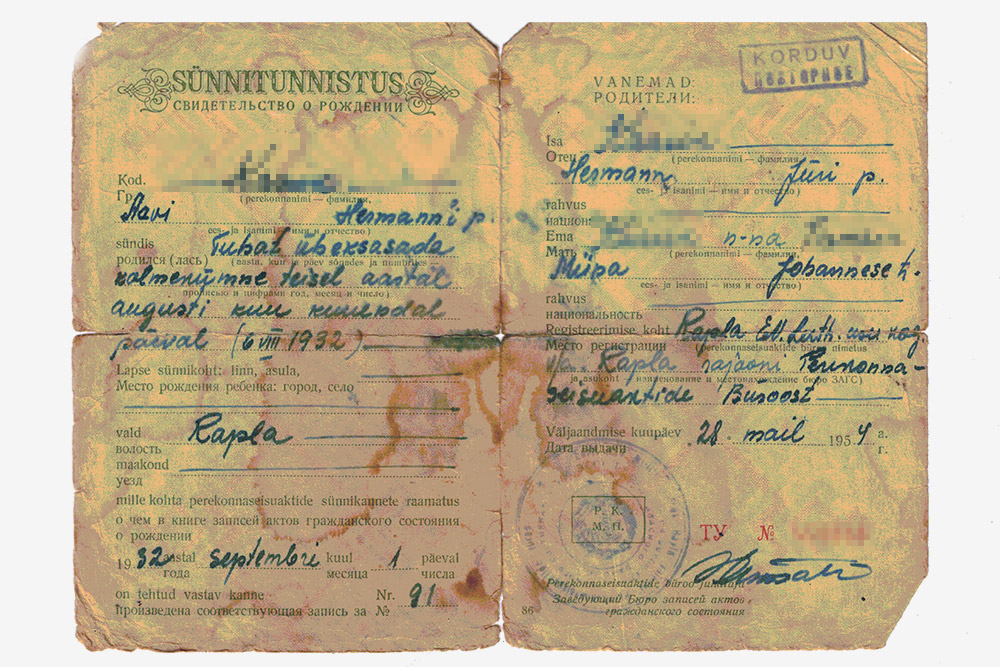 SÜNNITUNNISTUS
СВИДЕТЕЛЬСТВО О РОЖДЕНИИ
Kod.
Гр.
(perekonnanimi — фамилия,
Aavi Hermann'i p.
ees- ja isanimi — имя и отчество)
sündis Tuhat üheksasada
родился (лась) (aasta, kuu ja päev sõnades ja numbrites —
kolmekümne teisel aastal
прописью и цифрами год, месяц и число)
augusti kuu kuuendal
päeval (6 VIII 1932)
Lapse sünnikoht: linn, asula,
Место рождения ребенка: город, село
vald Rapla
волость
maakond
уезд
mille kohta perekonnaseisuaktide sünnikannete raamatus
о чем в книге записей актов гражданского состояния
о рождении
1932 aastal septembri kuul 1 päeval
года месяца числа
on tehtud vastav kanne Nr. 91
произведена соответствующая запись за №
KORDUV
ПОВТОРНОЕ
VANEMAD:
РОДИТЕЛИ:
Isa
Отец
(perekonnanimi — фамилия,
Hermann Jüri p.
ees- ja isanimi — имя и отчество)
rahvus
национ.
Ema n-na
Мать
(perekonnanimi — фамилия,
Johannese t.
ees- ja isanimi — имя и отчество)
rahvus
национальность
Registreerimise koht Rapla Ev. Luth. usu kog.
Место регистрации (perekonnaseisuaktide büroo nimetus
Rapla rajooni Perekonna-
ja asukoht наименование и местонахождение бюро ЗАГС)
seisuaktide Büroost
Väljaandmise kuupäev 28. mail 1954 a.
Дата выдачи г.
P. K.
М. П.
ТУ №
Perekonnaseisuaktide büroo juhataja
Заведующий Бюро записей актов
гражданского состояния
86